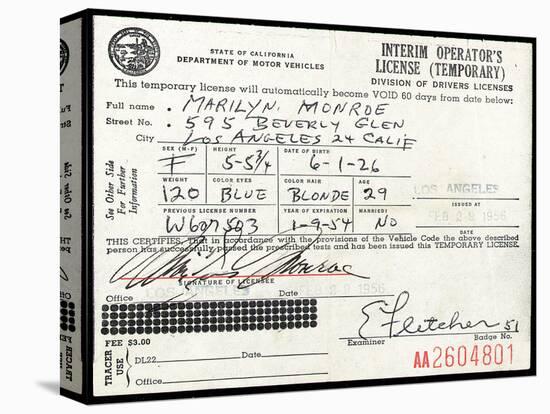 STATE OF CALIFORNIA
DEPARTMENT OF MOTOR VEHICLES
INTERIM OPERATOR'S
LICENSE (TEMPORARY)
DIVISION OF DRIVERS LICENSES
This temporary license will automatically become VOID 60 days from date below:
Full name MARILYN MONROE
Street No. 595 BEVERLY GLEN
City LOS ANGELES 24 CALIF
See Other Side For Further Information
SEX (M-F) HEIGHT DATE OF BIRTH
F 5-5 3/4 6-1-26
WEIGHT COLOR EYES COLOR HAIR AGE
120 BLUE BLONDE 29
LOS ANGELES
PREVIOUS LICENSE NUMBER YEAR OF EXPIRATION MARRIED? ISSUED AT
W697593 1-9-54 NO
1956
THIS CERTIFIES, That in accordance with the provisions of the Vehicle Code the above described
person has successfully passed the prescribed tests and has been issued this TEMPORARY LICENSE.
Marilyn Monroe
SIGNATURE OF LICENSEE
LOS ANGELES 1956
Office Date
E Fletcher 51
Examiner Badge No.
FEE $3.00
TRACER USE
DL22 Date
Office
AA2604801